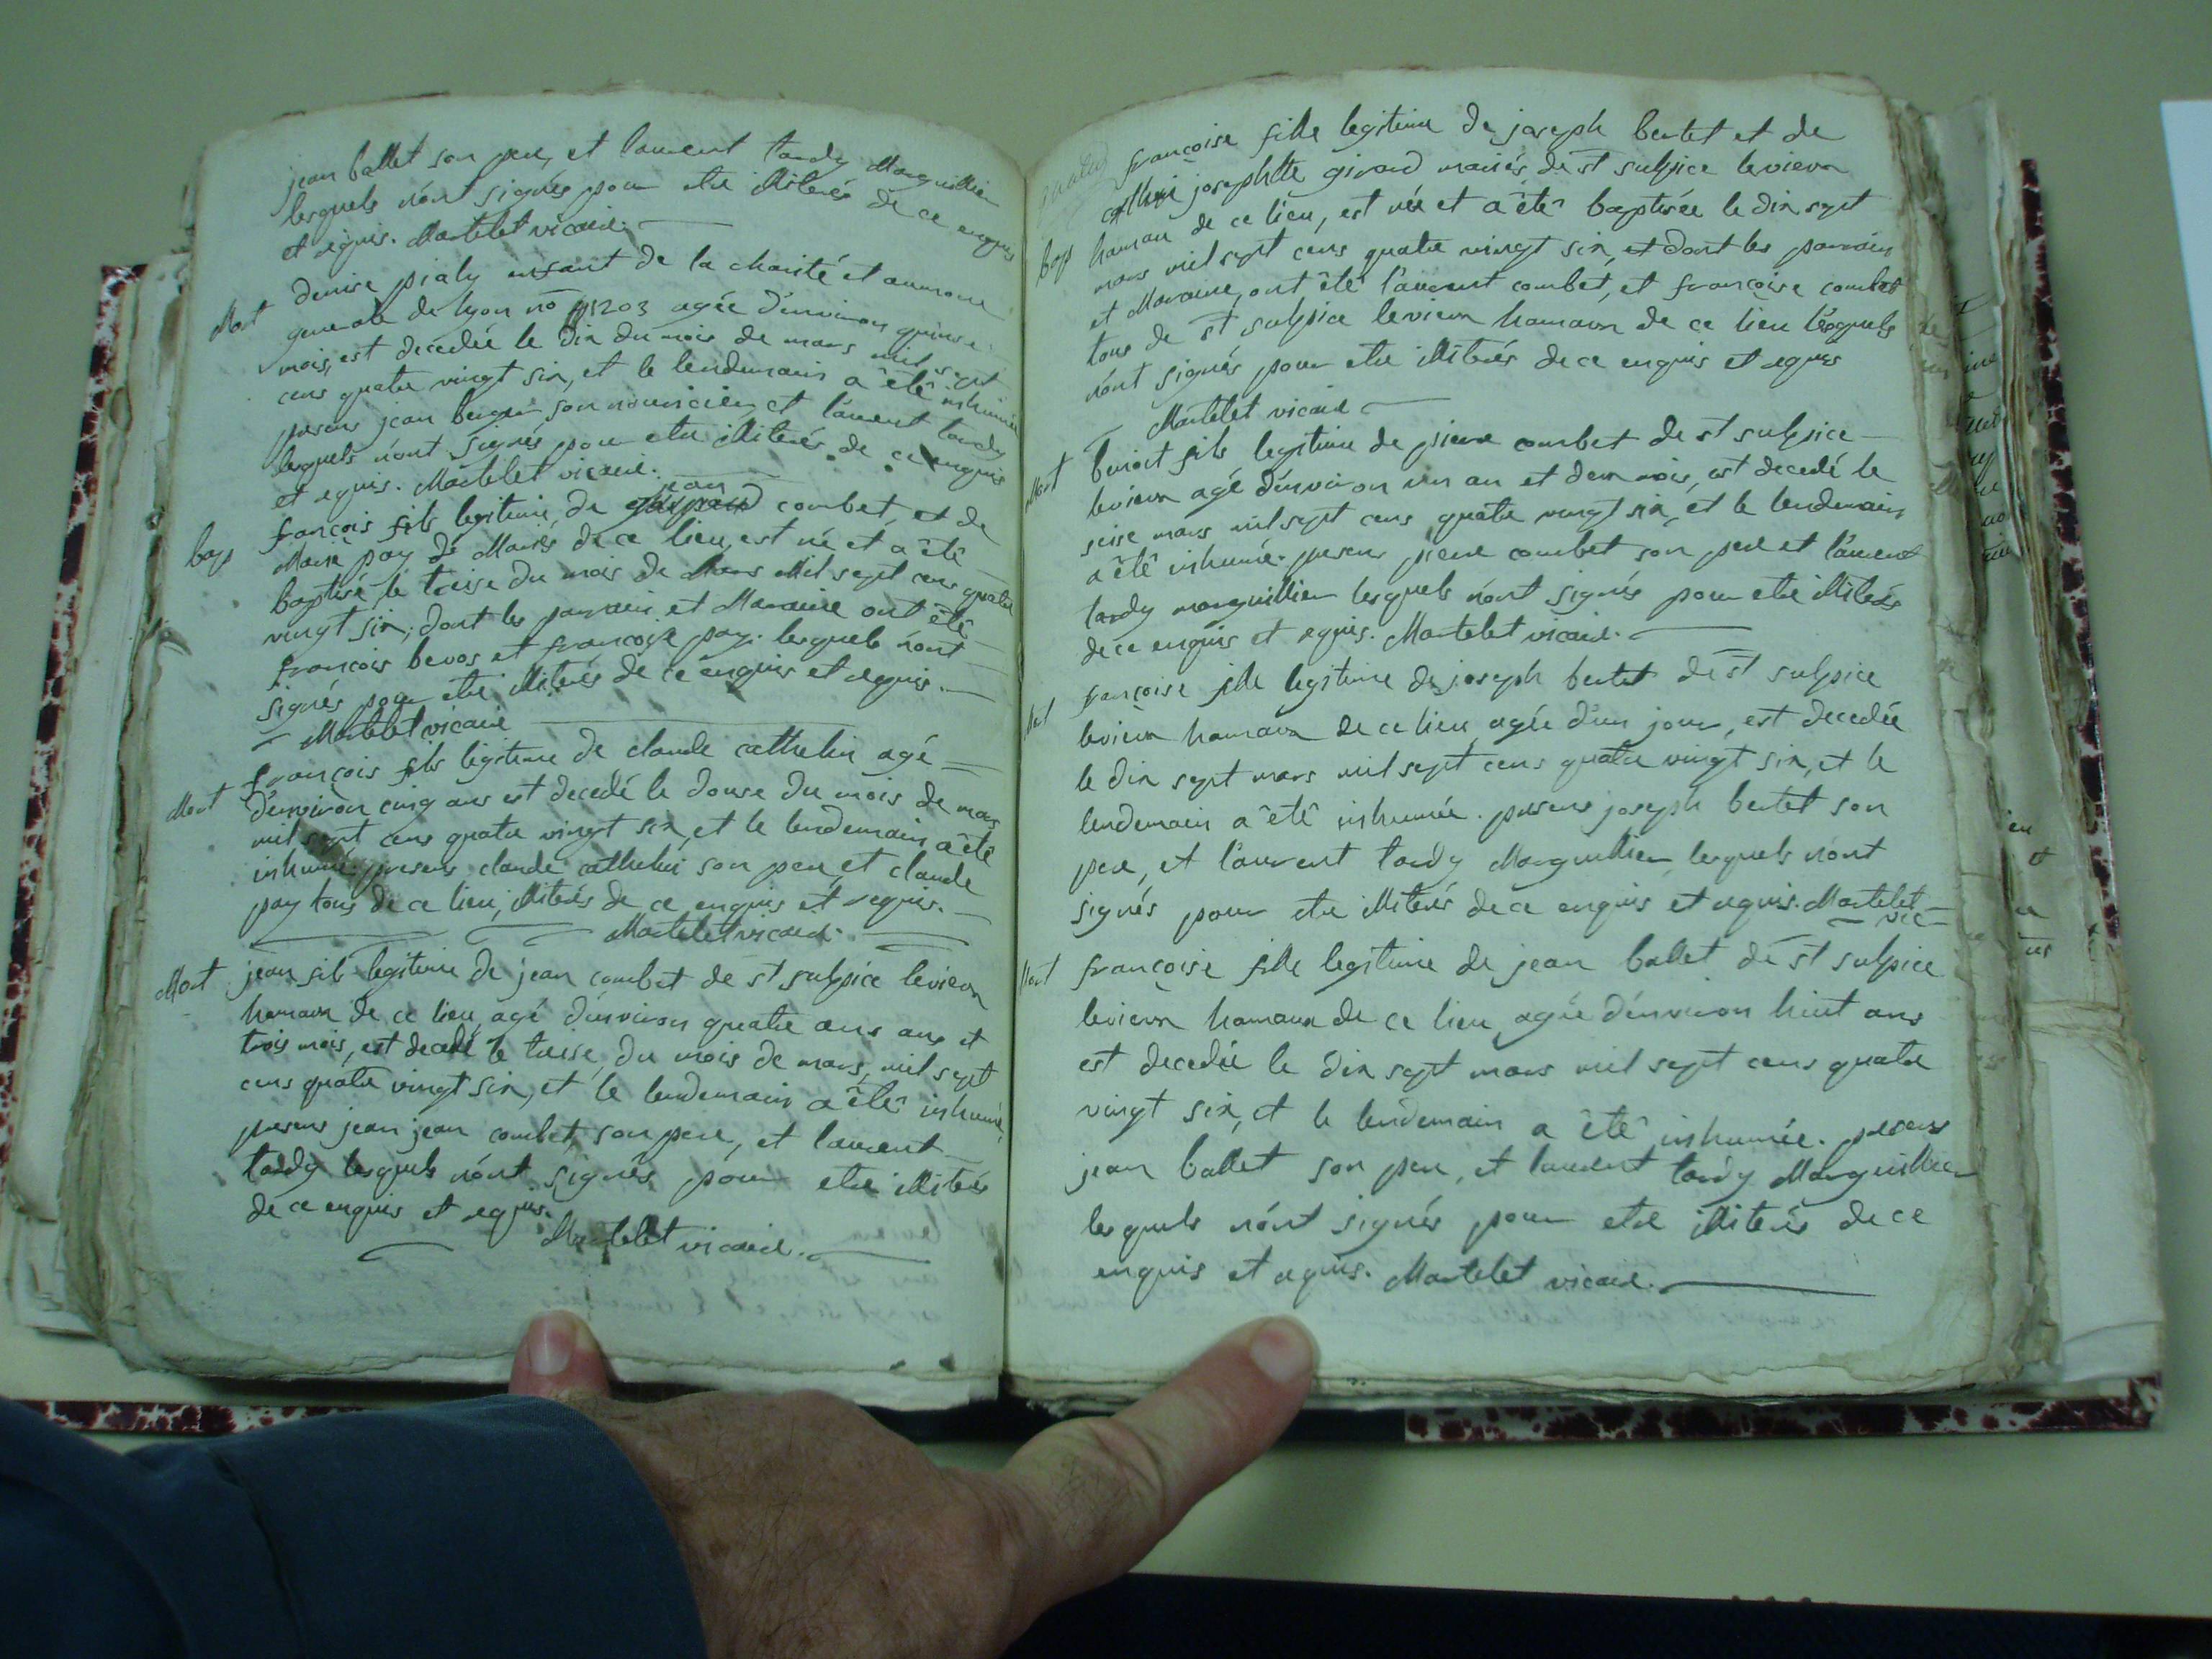 jean ballet son pere, et laurent tardy Marguillier
lesquels nónt signés pour etre illiterés de ce enquis
et requis. Martelet vicaire.
Mort
denise pialy enfant de la charité et aumone
generale de lyon no 1203 agée d'environ quinse
mois, est decedée le dix du mois de mars mil sept
cens quatre vingt six, et le lendemain a êtê inhumée
presens jean son nourricier, et laurent tardy
lesquels nónt signés pour etre illiterés de ce enquis
et requis. Martelet vicaire.
bap
jean
françois fils legitime de combet, et de
Marie pay de Mariés de ce lieu, est né et a êtê
baptisé le treise du mois de Mars Mil sept cens quatre
vingt six; dont les parrain et Maraine ont êtê
françois bevos et françoise pay. lesquels nónt
signés pour etre illiterés de ce enquis et requis.
Martelet vicaire
Mort
françois fils legitime de claude cathelin agé
d'environ cinq ans est decedé le douse du mois de mars
mil sept cens quatre vingt six, et le lendemain a êtê
inhumé. presens claude cathelin son pere, et claude
pay tous de ce lieu, illiterés de ce enquis et requis.
Martelet vicaire.
Mort
jean fils legitime de jean combet de st sulpice levieux
hamaux de ce lieu, agé d'environ quatre ans ans et
trois mois, est decedé le treise du mois de mars, mil sept
cens quatre vingt six, et le lendemain a êtê inhumé,
presens jean jean combet son pere, et laurent
tardy lesquels nónt signés pour etre illiterés
de ce enquis et requis.
Martelet vicaire.
françoise fille legitime de joseph bertet et de
josephtte girard mariés de st sulpice levieux
bap
hamau de ce lieu, est née et a êtê baptisée le dix sept
mars mil sept cens quatre vingt six, et dont les parrain
et Maraine, ont êtê laurent combet, et françoise combet
tous de st sulpice levieux hamaux de ce lieu lesquels
nónt signés pour etre illiterés de ce enquis et requis
Martelet vicaire
Mort
benoit fils legitime de pierre combet de st sulpice
levieux agé d'environ un an et deux mois, est decedé le
seise mars mil sept cens quatre vingt six, et le lendemain
a êtê inhumé. presens pierre combet son pere et laurent
tardy marguillier lesquels nónt signés pour etre illiterés
de ce enquis et requis. Martelet vicaire.
Mort
françoise fille legitime de joseph bertet de st sulpice
levieux hamaux de ce lieu, agée d'un jour, est decedée
le dix sept mars mil sept cens quatre vingt six, et le
lendemain a êtê inhumée. presens joseph bertet son
pere, et laurent tardy Marguillier, lesquels nónt
signés pour etre illiterés de ce enquis et requis. Martelet
vic
Mort
françoise fille legitime de jean ballet de st sulpice
levieux hamaux de ce lieu, agée d'environ huit ans
est decedée le dix sept mars mil sept cens quatre
vingt six, et le lendemain a êtê inhumée. presens
jean ballet son pere, et laurent tardy Marguillier
lesquels nónt signés pour etre illiterés de ce
enquis et requis. Martelet vicaire.